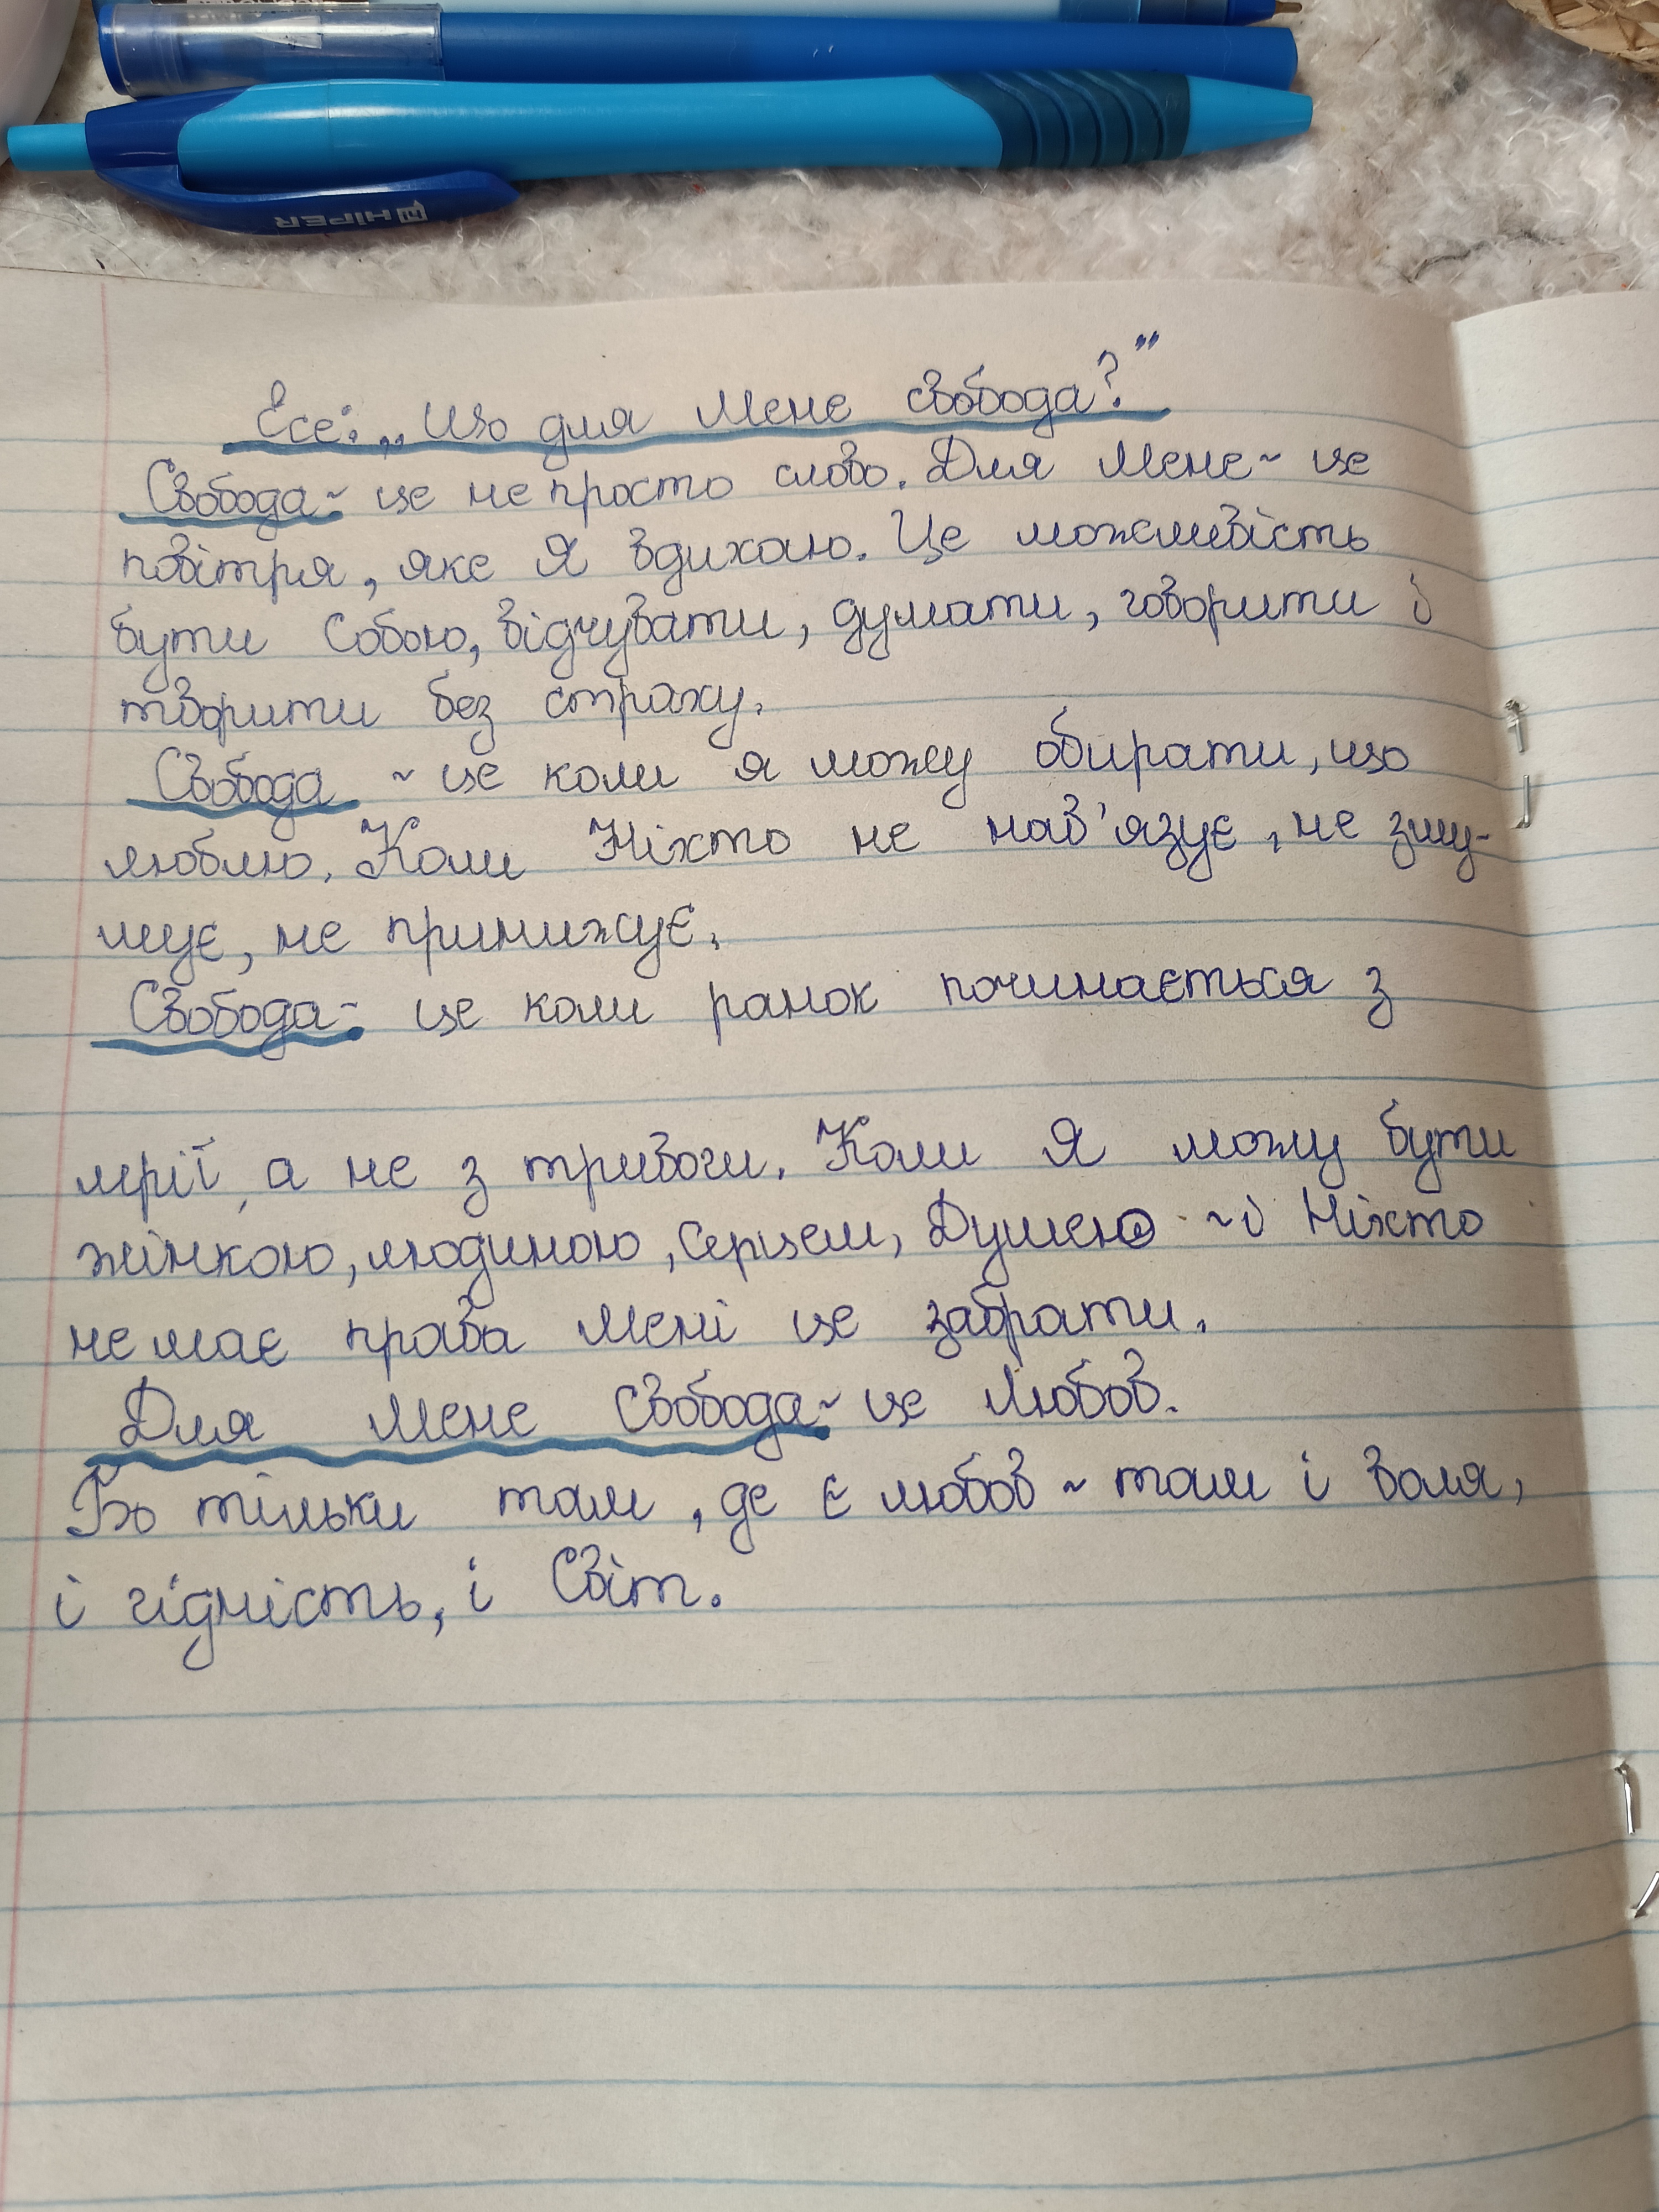 HIPER
Есе: „Що для Мене свобода?”
Свобода ~ це не просто слово. Для Мене ~ це
повітря, яке Я вдихаю. Це можливість
бути Собою, відчувати, думати, говорити і
творити без страху.
Свобода ~ це коли я можу обирати, що
люблю. Коли Ніхто не нав'язує, не зму-
шує, не принижує.
Свобода - це коли ранок починається з
мрії, а не з тривоги. Коли Я можу бути
жінкою, людиною, Серцем, Душею ~ і Ніхто
не має права Мені це забрати.
Для Мене Свобода ~ це Любов.
Бо тільки там, де є любов ~ там і воля,
і гідність, і Світ.